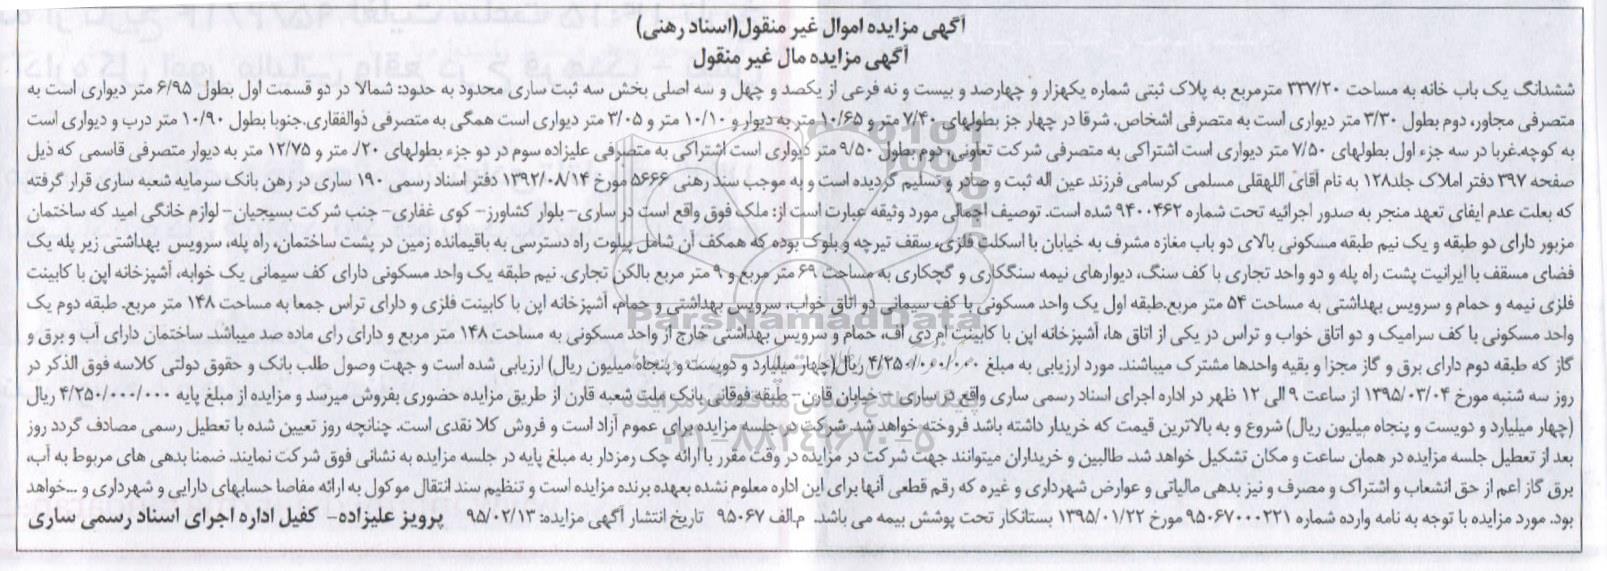 آگهی مزایده اموال غیر منقول(اسناد رهنی)
آگهی مزایده مال غیر منقول
ششدانگ یک باب خانه به مساحت ۳۳۷/۲۰ مترمربع به پلاک ثبتی شماره یکهزار و چهارصد و بیست و نه فرعی از یکصد و چهل و سه اصلی بخش سه ثبت ساری محدود به حدود: شمالا در دو قسمت اول بطول ۶/۹۵ متر دیواری است به
متصرفی مجاور، دوم بطول ۳/۳۰ متر دیواری است به متصرفی اشخاص. شرقا در چهار جز بطولهای ۷/۴۰ متر و ۱۰/۶۵ متر به دیوار و ۱۰/۱۰ متر و ۳/۰۵ متر دیواری است همگی به متصرفی ذوالفقاری.جنوبا بطول ۱۰/۹۰ متر درب و دیواری است
به کوچه.غربا در سه جزء اول بطولهای ۷/۵۰ متر دیواری است اشتراکی به متصرفی شرکت تعاونی دوم بطول ۹/۵۰ متر دیواری است اشتراکی به متصرفی علیزاده سوم در دو جزء بطولهای ۲۰/. متر و ۱۲/۷۵ متر به دیوار متصرفی قاسمی که ذیل
صفحه ۳۹۷ دفتر املاک جلد۱۲۸ به نام آقای اللهقلی مسلمی کرسامی فرزند عین اله ثبت و صادر و تسلیم گردیده است و به موجب سند رهنی ۵۶۶۶ مورخ ۱۳۹۲/۰۸/۱۴ دفتر اسناد رسمی ۱۹۰ ساری در رهن بانک سرمایه شعبه ساری قرار گرفته
که بعلت عدم ایفای تعهد منجر به صدور اجرائیه تحت شماره ۹۴۰۰۴۶۲ شده است. توصیف اجمالی مورد وثیقه عبارت است از: ملک فوق واقع است در ساری- بلوار کشاورز- کوی غفاری- جنب شرکت بسیجیان- لوازم خانگی امید که ساختمان
مزبور دارای دو طبقه و یک نیم طبقه مسکونی بالای دو باب مغازه مشرف به خیابان با اسکلت فلزی، سقف تیرچه و بلوک بوده که همکف آن شامل پیلوت راه دسترسی به باقیمانده زمین در پشت ساختمان، راه پله، سرویس بهداشتی زیر پله یک
فضای مسقف با ایرانیت پشت راه پله و دو واحد تجاری با کف سنگ، دیوارهای نیمه سنگکاری و گچکاری به مساحت ۶۹ متر مربع و ۹ متر مربع بالکن تجاری. نیم طبقه یک واحد مسکونی دارای کف سیمانی یک خوابه، آشپزخانه اپن با کابینت
فلزی نیمه و حمام و سرویس بهداشتی به مساحت ۵۴ متر مربع.طبقه اول یک واحد مسکونی با کف سیمانی دو اتاق خواب، سرویس بهداشتی و حمام، آشپزخانه اپن با کابینت فلزی و دارای تراس جمعا به مساحت ۱۴۸ متر مربع. طبقه دوم یک
واحد مسکونی با کف سرامیک و دو اتاق خواب و تراس در یکی از اتاق ها، آشپزخانه اپن با کابینت ام دی اف، حمام و سرویس بهداشتی خارج از واحد مسکونی به مساحت ۱۴۸ متر مربع و دارای رای ماده صد میباشد. ساختمان دارای آب و برق و
گاز که طبقه دوم دارای برق و گاز مجزا و بقیه واحدها مشترک میباشند. مورد ارزیابی به مبلغ ۴/۲۵۰/۰۰۰/۰۰۰ ریال(چهار میلیارد و دویست و پنجاه میلیون ریال) ارزیابی شده است و جهت وصول طلب بانک و حقوق دولتی کلاسه فوق الذکر در
روز سه شنبه مورخ ۱۳۹۵/۰۳/۰۴ از ساعت ۹ الی ۱۲ ظهر در اداره اجرای اسناد رسمی ساری واقع در ساری - خیابان قارن- طبقه فوقانی بانک ملت شعبه قارن از طریق مزایده حضوری بفروش میرسد و مزایده از مبلغ پایه ۴/۲۵۰/۰۰۰/۰۰۰ ریال
(چهار میلیارد و دویست و پنجاه میلیون ریال) شروع و به بالاترین قیمت که خریدار داشته باشد فروخته خواهد شد. شرکت در جلسه مزایده برای عموم آزاد است و فروش کلا نقدی است. چنانچه روز تعیین شده با تعطیل رسمی مصادف گردد روز
بعد از تعطیل جلسه مزایده در همان ساعت و مکان تشکیل خواهد شد. طالبین و خریداران میتوانند جهت شرکت در مزایده در وقت مقرر با ارائه چک رمزدار به مبلغ پایه در جلسه مزایده به نشانی فوق شرکت نمایند. ضمنا بدهی های مربوط به آب،
برق گاز اعم از حق انشعاب و اشتراک و مصرف و نیز بدهی مالیاتی و عوارض شهرداری و غیره که رقم قطعی آنها برای این اداره معلوم نشده بعهده برنده مزایده است و تنظیم سند انتقال موکول به ارائه مفاصا حسابهای دارایی و شهرداری و ...خواهد
بود. مورد مزایده با توجه به نامه وارده شماره ۹۵۰۶۷۰۰۰۲۲۱ مورخ ۱۳۹۵/۰۱/۲۲ بستانکار تحت پوشش بیمه می باشد. م.الف ۹۵۰۶۷ تاریخ انتشار آگهی مزایده: ۹۵/۰۲/۱۳ پرویز علیزاده- کفیل اداره اجرای اسناد رسمی ساری
ParsNamadData
پایگاه اطلاع رسانی مناقصه و مزایده
۰۲۱-۸۸۳۴۹۶۷۰-۵